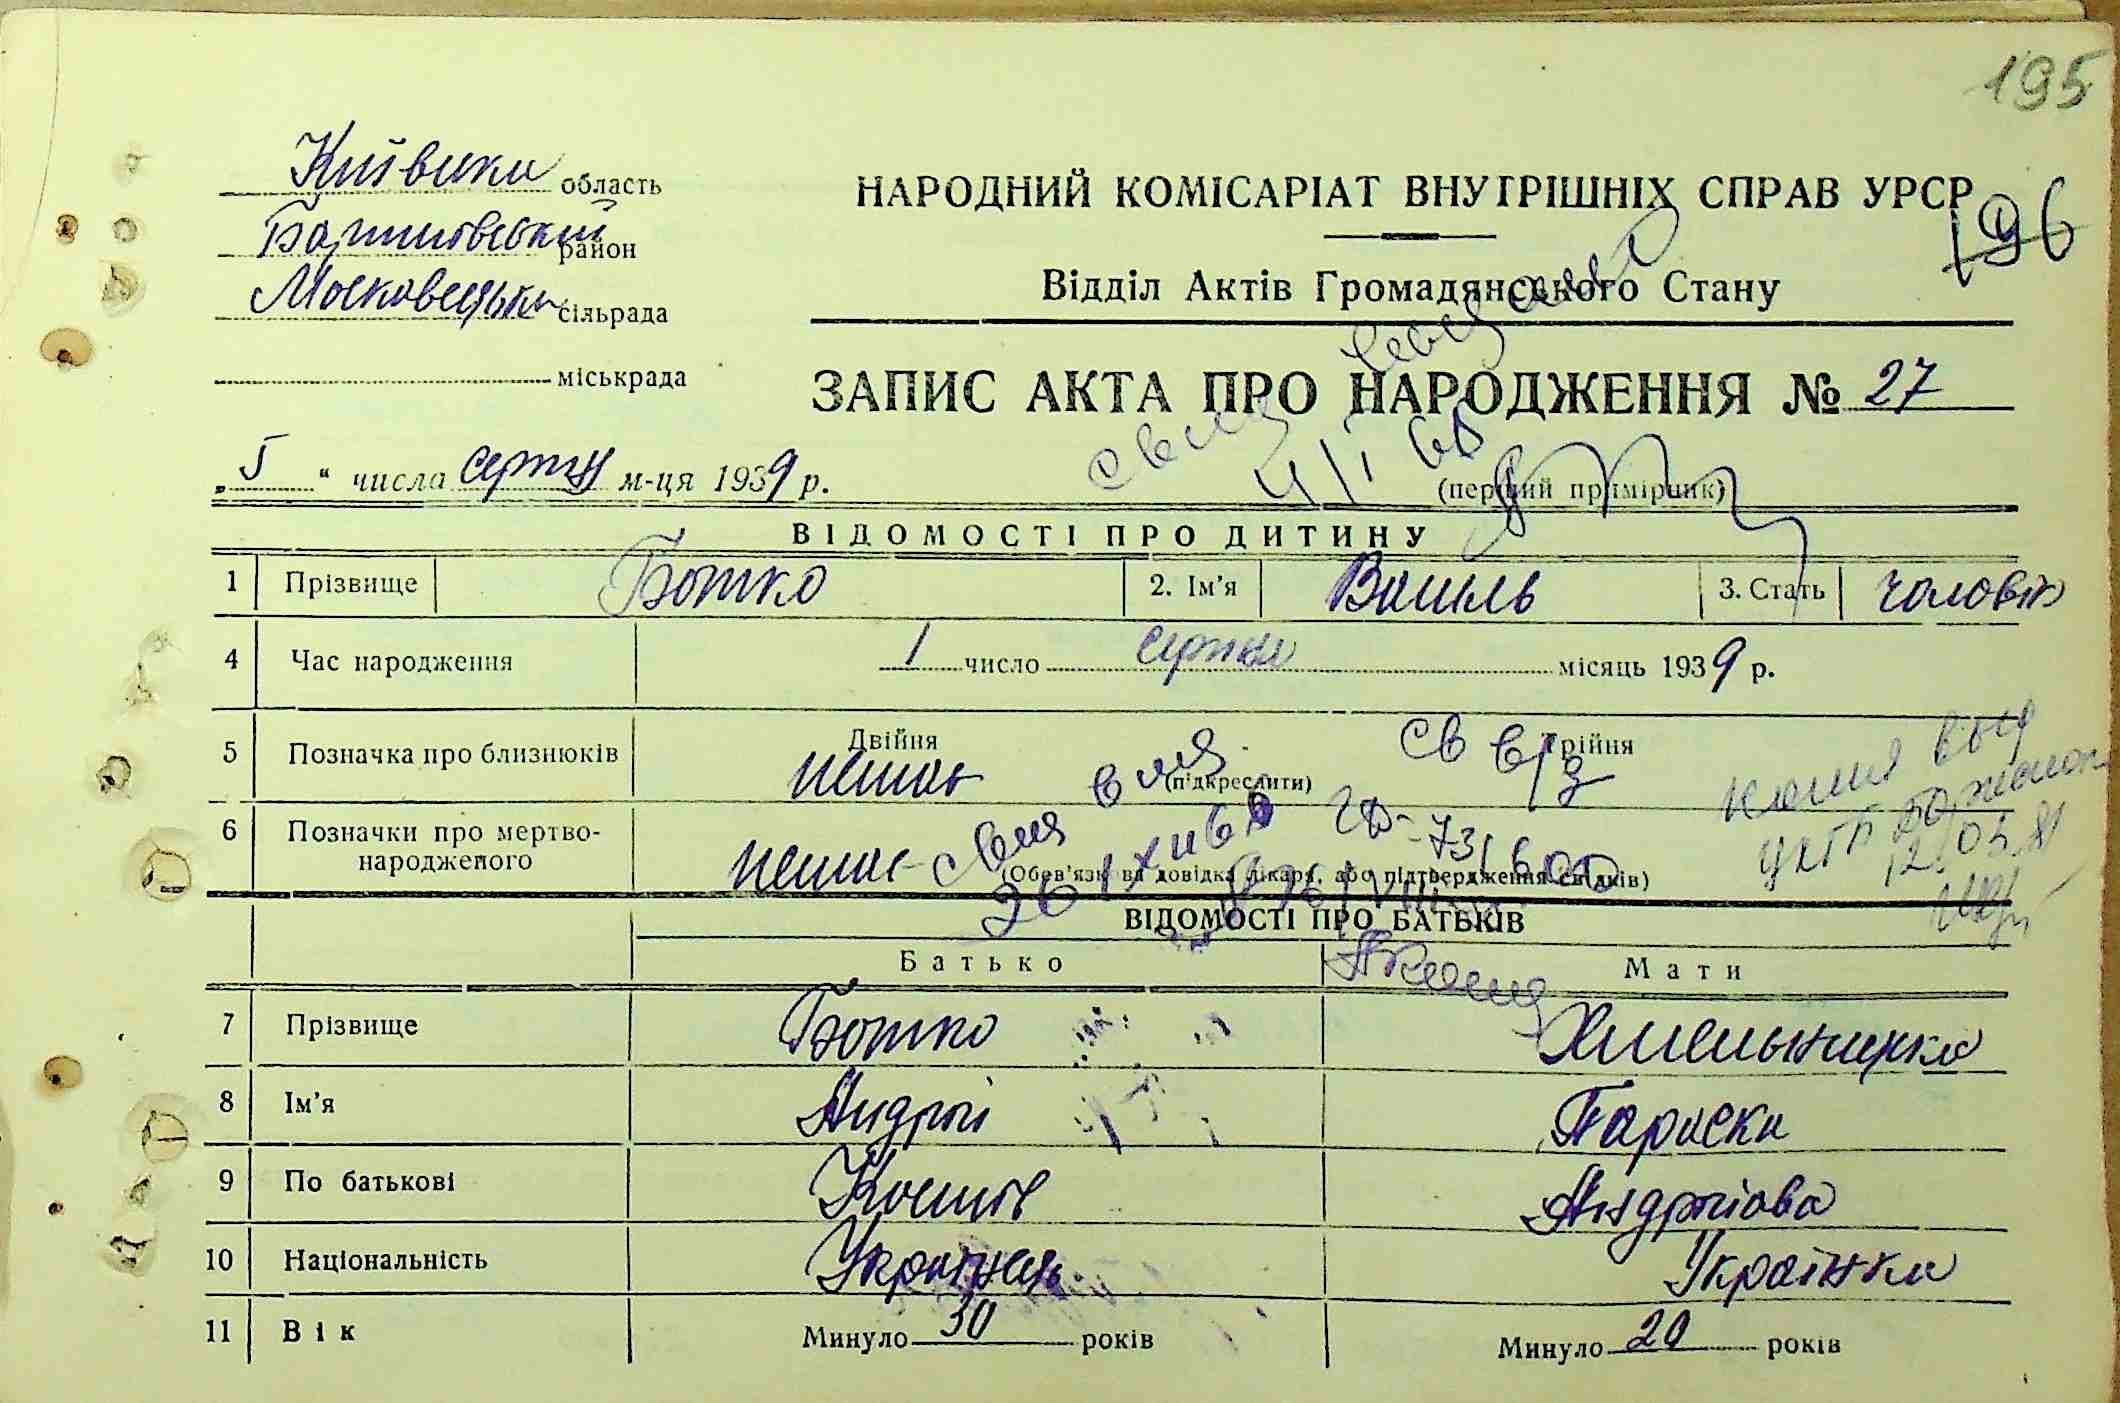 195
Київська область
Баришевський район
сільрада
міськрада
НАРОДНИЙ КОМІСАРІАТ ВНУТРІШНІХ СПРАВ УРСР
196
Відділ Актів Громадянського Стану
ЗАПИС АКТА ПРО НАРОДЖЕННЯ № 27
„5“ числа серпня м-ця 1939 р.
(перший примірник)
ВІДОМОСТІ ПРО ДИТИНУ
1 Прізвище Ботко 2. Ім'я Василь 3. Стать чоловіч
4 Час народження 1 число серпня місяць 1939 р.
5 Позначка про близнюків Двійня Трійня
немає (підкреслити)
6 Позначки про мертво-
народженого немає
(Обов'язкова довідка лікаря, або підтвердження свідків)
ВІДОМОСТІ ПРО БАТЬКІВ
Батько Мати
7 Прізвище Ботко Хмельницька
8 Ім'я Андрій Параска
9 По батькові Костів Андріїова
10 Національність Українець Українка
11 Вік Минуло 30 років Минуло 20 років